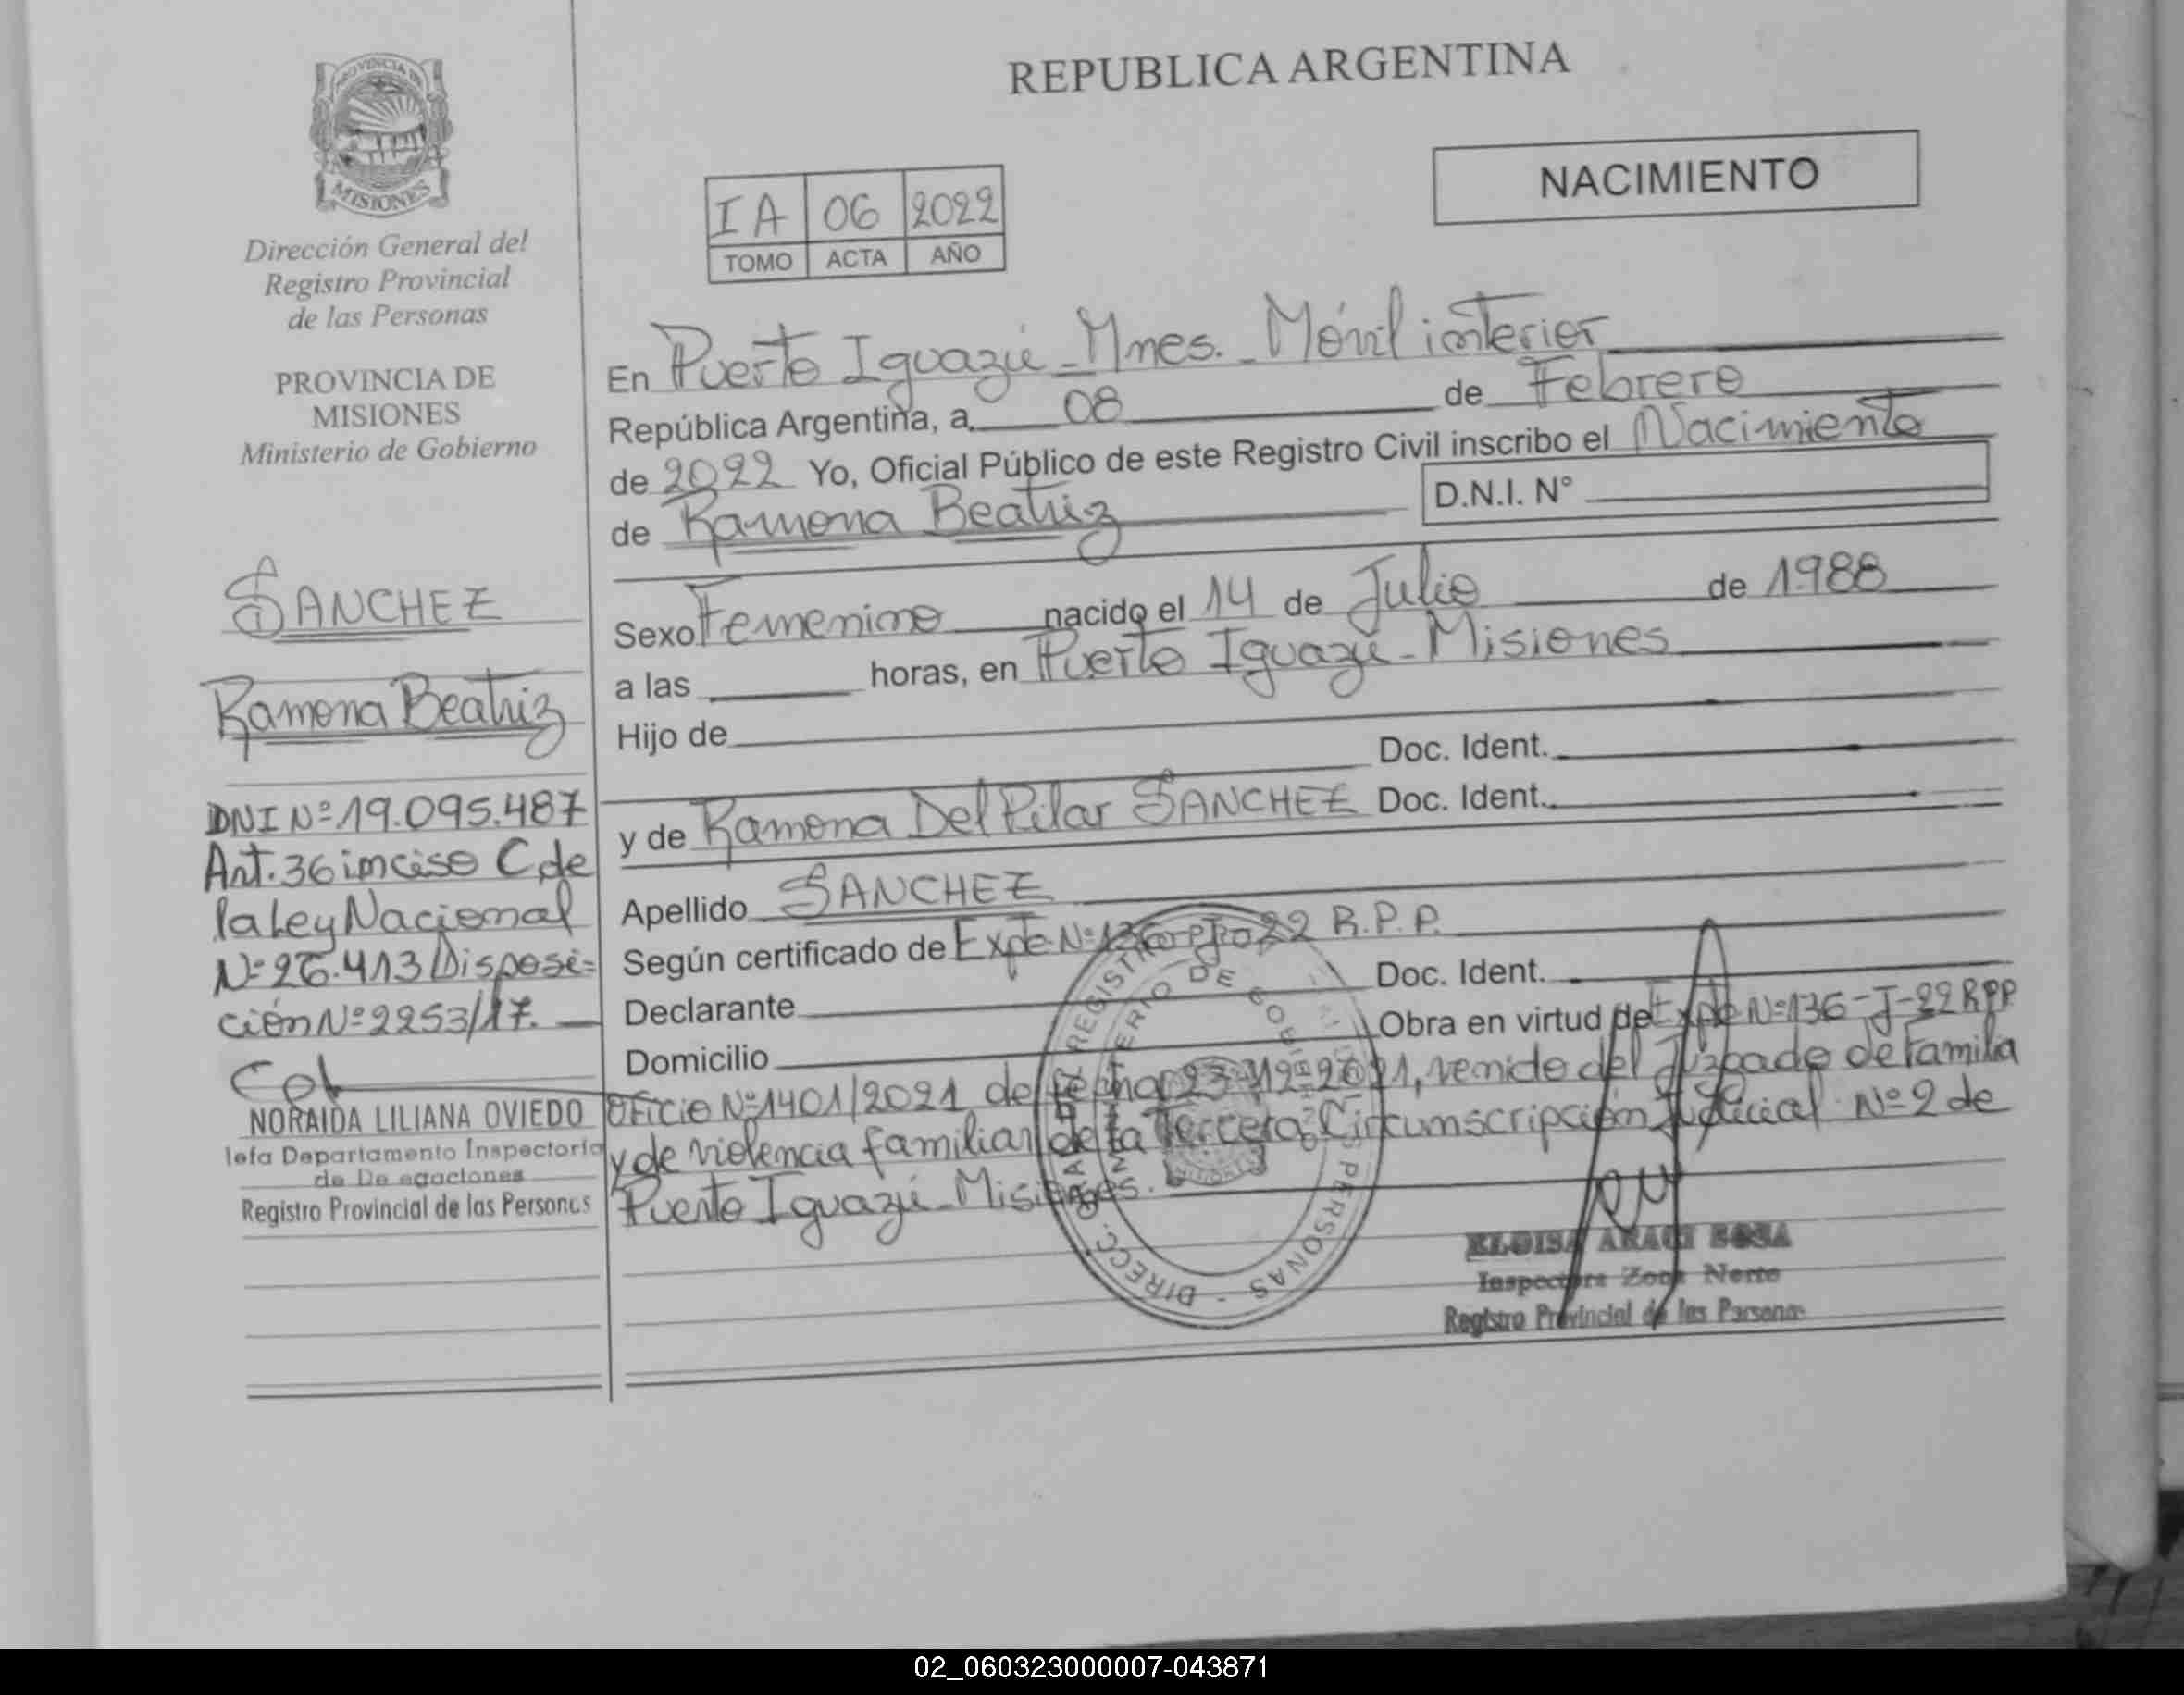 PROVINCIA DE
MISIONES
Dirección General del
Registro Provincial
de las Personas
PROVINCIA DE
MISIONES
Ministerio de Gobierno
SANCHEZ
Ramona Beatriz
DNI Nº 19.095.487
Art. 36 inciso C de
la Ley Nacional
Nº 26.413 Disposi=
ción Nº 2253/17.
NORAIDA LILIANA OVIEDO
Jefa Departamento Inspectoria
de De egaciones
Registro Provincial de las Personas
REPUBLICA ARGENTINA
NACIMIENTO
IA 06 2022
TOMO ACTA AÑO
En Puerto Iguazú - Mnes. - Móvil interior
República Argentina, a 08 de Febrero
de 2022 Yo, Oficial Público de este Registro Civil inscribo el Nacimiento
de Ramona Beatriz D.N.I. N°
Sexo Femenino nacido el 14 de Julio de 1988
a las horas, en Puerto Iguazú - Misiones
Hijo de
Doc. Ident.
y de Ramona Del Pilar SANCHEZ Doc. Ident.
Apellido SANCHEZ
Según certificado de Expte Nº 136 22 R.P.P.
Declarante Doc. Ident.
Domicilio Obra en virtud del Expte Nº 136-J-22 RPP
Oficio Nº 1401/2021 de fecha 23-12-2021, venido del Juzgado de Familia
y de violencia familiar de la Tercera Circumscripción Judicial Nº 2 de
Puerto Iguazú - Misiones.
DIRECC. GRAL. DEL REGISTRO PERSONAS
MINISTERIO DE GOBIERNO
ELOISA ARACI SOSA
Inspectora Zona Norte
Registro Provincial de las Personas
02_060323000007-043871